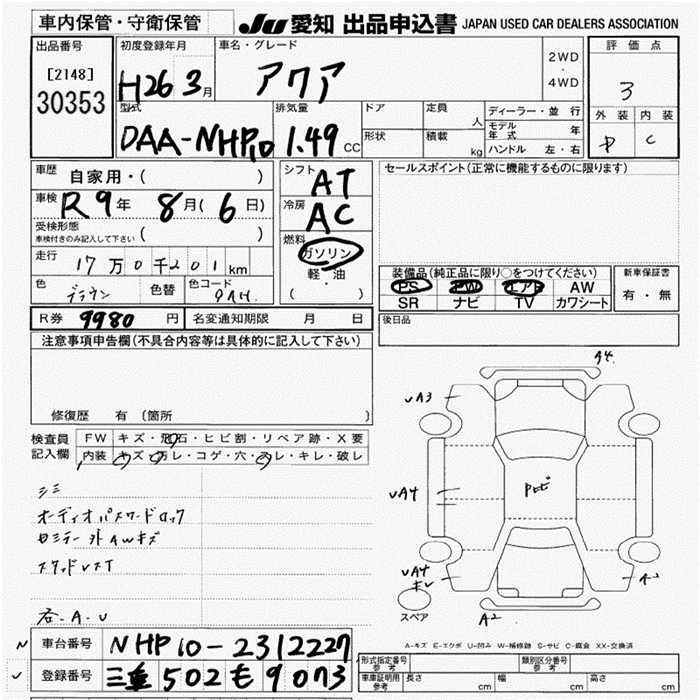 車内保管・守衛保管
JU 愛知 出品申込書 JAPAN USED CAR DEALERS ASSOCIATION
出品番号
[2148]
30353
初度登録年月
H26 3月
車名・グレード
アクア
2WD
・
4WD
評価点
3
外装 内装
C
型式
DAA-NHP10
排気量
1.49 CC
ドア
定員
人
形状
積載
kg
ディーラー・並行
モデル年式 年
ハンドル 左・右
車歴
自家用・( )
車検
R9年 8月(6日)
受検形態
車検付きのみ記入して下さい ( )
走行
17万0千201km
色
ブラウン
色替
色コード
シフト
AT
冷房
AC
燃料
ガソリン
軽・油
( )
セールスポイント(正常に機能するものに限ります)
装備品(純正品に限り○をつけてください)
PS PW エアB AW
SR ナビ TV カワシート
新車保証書
有・無
R券 9980 円
名変通知期限 月 日
後日品
注意事項申告欄(不具合内容等は具体的に記入して下さい)
修復歴 有 (箇所 )
検査員記入欄
FW キズ・飛石・ヒビ割・リペア跡・X要
内装 キズ・汚レ・コゲ・穴・スレ・キレ・破レ
シミ
オーディオパスワードロック
A4
A3
A4
A4
キレ
A2
A2
スペア
A-キズ E-エクボ U-凹み W-補修跡 S-サビ C-腐食 XX-交換済
車台番号
NHP10-2312227
登録番号
三重 502 も 9073
形式指定番号
参考
類別区分番号
参考
車庫証明用
参考
長さ cm 幅 cm 高さ cm